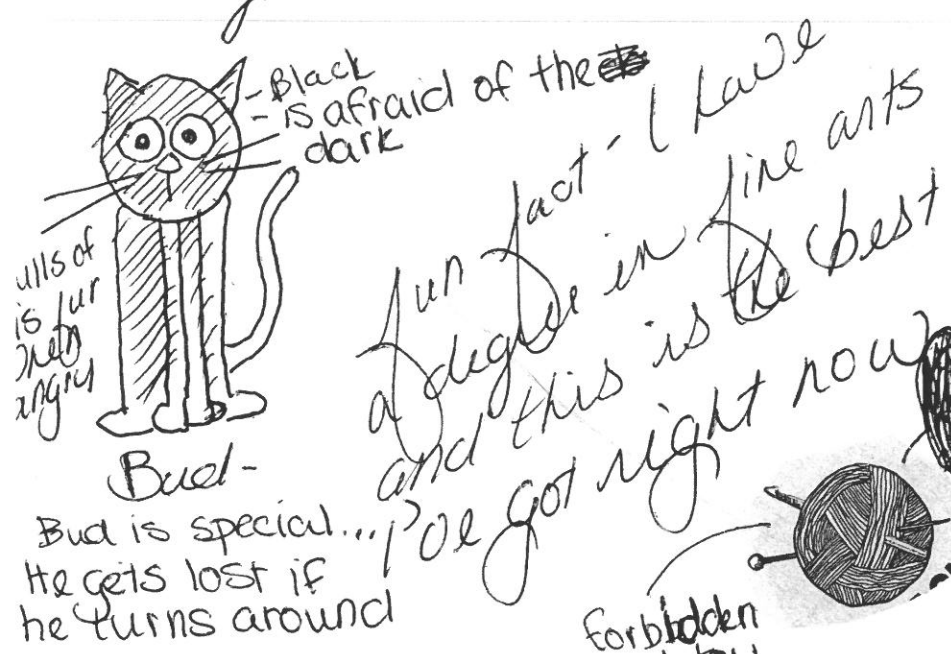 -Black
-is afraid of the
dark
ulls of
is fur
when
angry
Bud-
Bud is special...
He gets lost if
he turns around
fun fact- I have
a degree in fine arts
and this is the best
I've got right now
forbidden